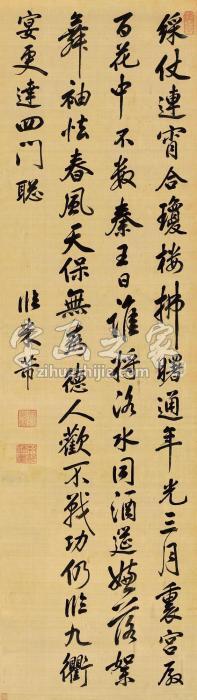 綵仗連宵合瓊樓拂曙通年光三月裏宮殿
百花中不數秦王日誰將洛水同酒筵嫌落絮
舞袖怯春風天保無為德人歡不戰功仍臨九衢
宴更達四門聰
臨米芾